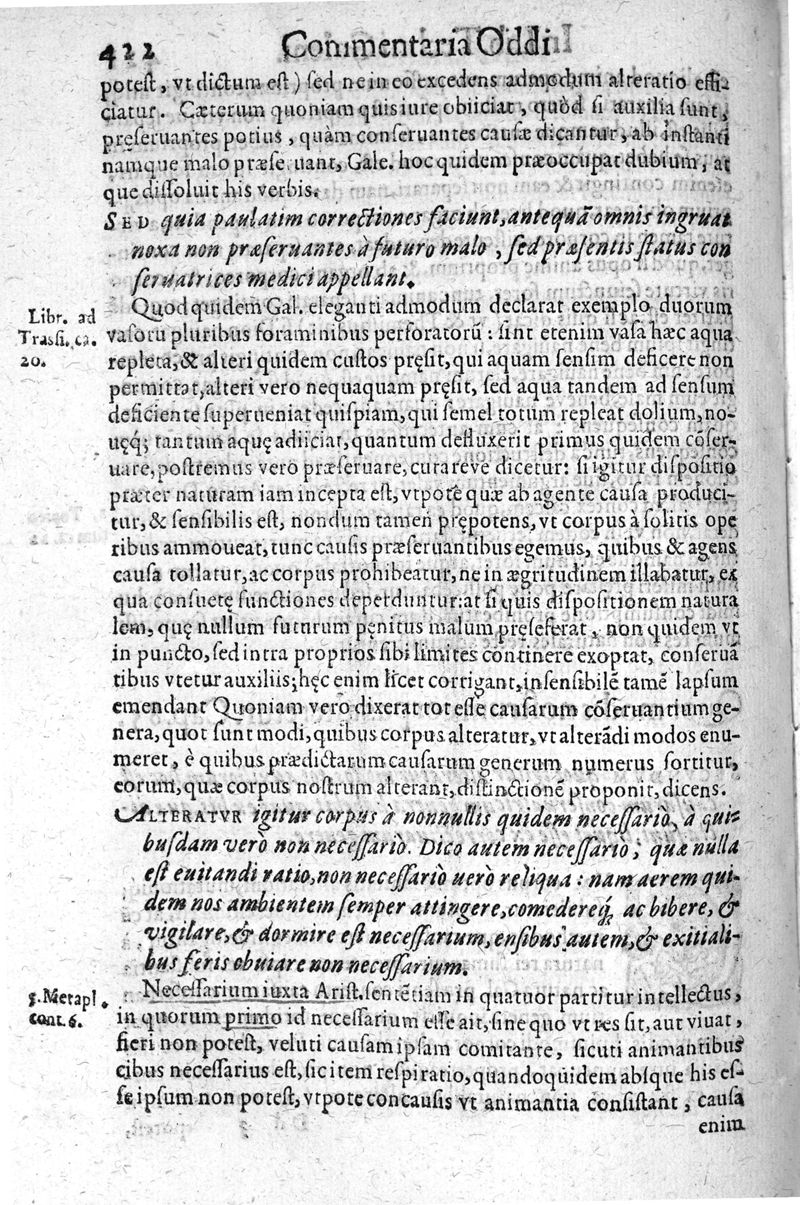 422 Commentaria Oddi
potest, vt dictum est) sed ne in eo excedens admodum alteratio effi-
ciatur. Cæterum quoniam quis iure obiiciat, quòd si auxilia sunt,
pręseruantes potius, quàm conseruantes causæ dicantur, ab instanti
namque malo præseruant, Gale. hoc quidem præoccupat dubium, at
que dissoluit his verbis.
SED quia paulatim correctiones faciunt, antequã omnis ingruat
noxa non præseruantes à futuro malo, sed præsentis status con
seruatrices medici appellant.
Quod quidem Gal. eleganti admodum declarat exemplo duorum
Libr. ad
Trassi. ca.
20.
vasorũ pluribus foraminibus perforatorũ: sint etenim vasa hæc aqua
repleta, & alteri quidem custos pręsit, qui aquam sensim deficere non
permittat, alteri vero nequaquam pręsit, sed aqua tandem ad sensum
deficiente superueniat quispiam, qui semel totum repleat dolium, no-
uęq́; tantum aquę adiiciat, quantum defluxerit primus quidem cõser-
uare, postremus vero præseruare, curareve dicetur: si igitur dispositio
præter naturam iam incepta est, vtpote quæ ab agente causa produci-
tur, & sensibilis est, nondum tamen prępotens, vt corpus à solitis ope
ribus ammoueat, tunc causis præseruantibus egemus, quibus & agens
causa tollatur, ac corpus prohibeatur, ne in ægritudinem illabatur, ex
qua consuetę functiones deperduntur: at si quis dispositionem natura
lem, quę nullum futurum pęnitus malum pręseferat, non quidem vt
in puncto, sed intra proprios sibi limites continere exoptat, conseruã
tibus vtetur auxiliis; hęc enim licet corrigant, insensibilẽ tamẽ lapsum
emendant Quoniam vero dixerat tot esse causarum cõseruantium ge-
nera, quot sunt modi, quibus corpus alteratur, vt alterãdi modos enu-
meret, è quibus prædictarum causarum generum numerus sortitur,
eorum, quæ corpus nostrum alterant, distinctionẽ proponit, dicens.
ALTERATVR igitur corpus à nonnullis quidem necessariò, à qui-
busdam vero non necessariò. Dico autem necessariò, quæ nulla
est euitandi ratio, non necessariò uerò reliqua: nam aerem qui-
dem nos ambientem semper attingere, comedereq́; ac bibere, &
vigilare, & dormire est necessarium, ensibus autem, & exitiali-
bus feris obuiare non necessarium.
Necessarium iuxta Arist. sentẽtiam in quatuor partitur intellectus,
5. Metapł.
cont. 6.
in quorum primo id necessarium esse ait, sine quo vt res sit, aut viuat,
fieri non potest, veluti causam ipsam comitante, sicuti animantibus
cibus necessarius est, sic item respiratio, quandoquidem absque his es-
se ipsum non potest, vtpote concausis vt animantia consistant, causa
enim